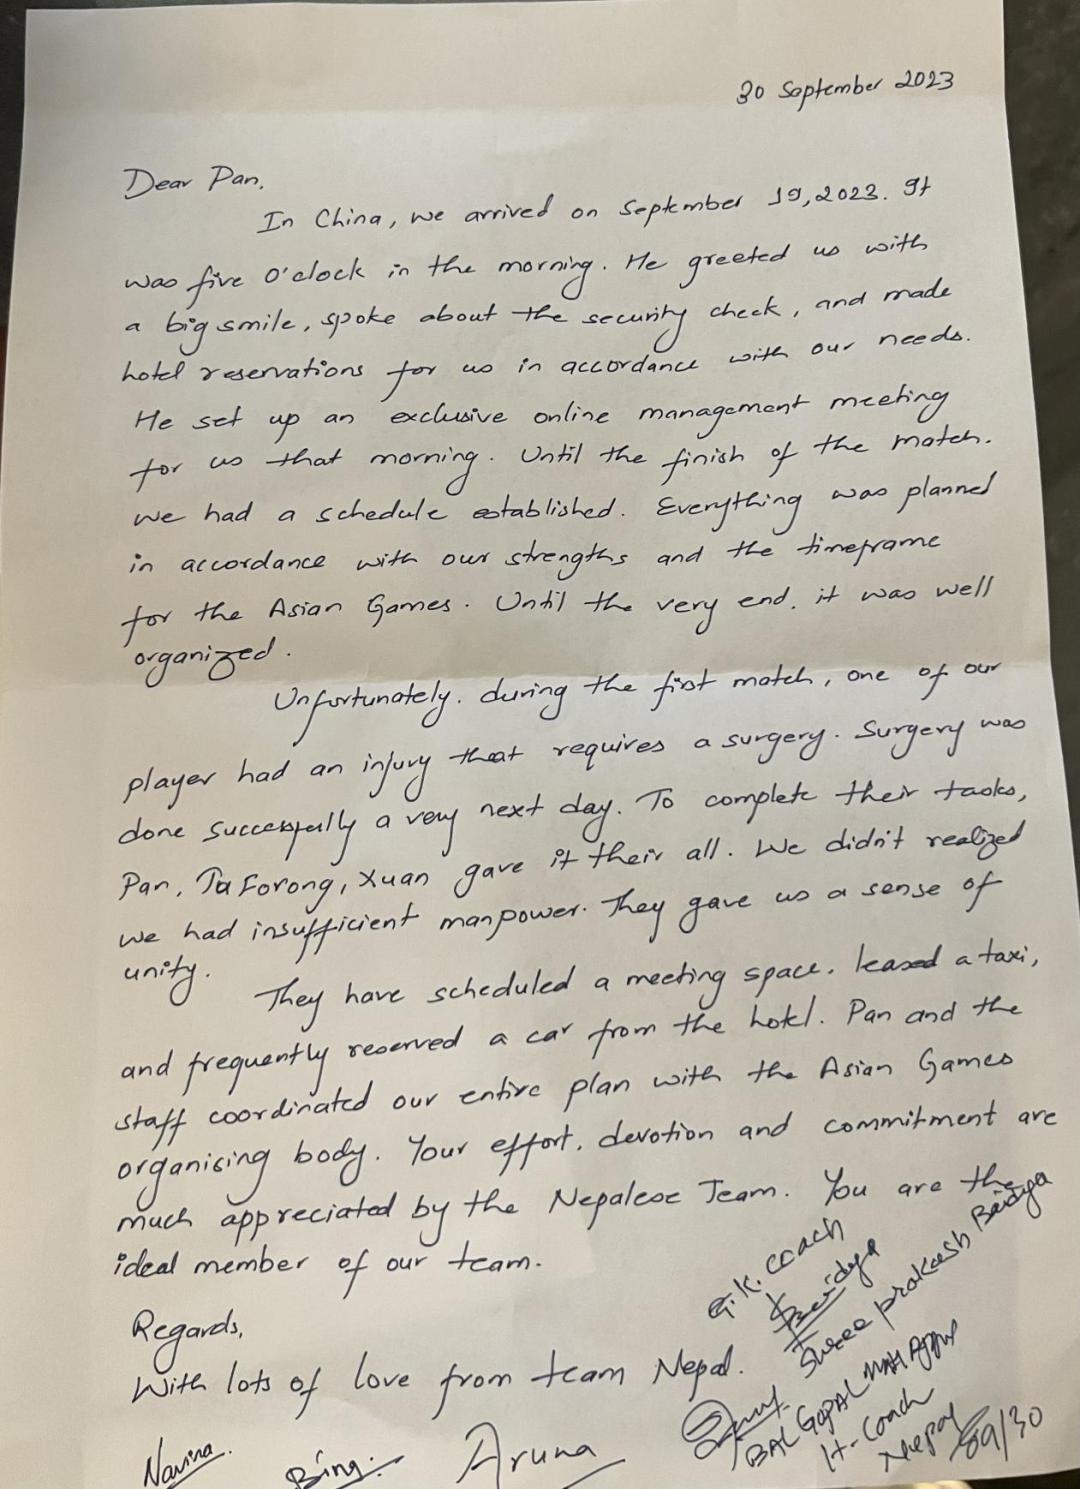 30 September 2023
Dear Pan,
In China, we arrived on September 19, 2023. It
was five o'clock in the morning. He greeted us with
a big smile, spoke about the security check, and made
hotel reservations for us in accordance with our needs.
He set up an exclusive online management meeting
for us that morning. Until the finish of the match.
we had a schedule established. Everything was planned
in accordance with our strengths and the timeframe
for the Asian Games. Until the very end, it was well
organized.
Unfortunately, during the first match, one of our
player had an injury that requires a surgery. Surgery was
done successfully a very next day. To complete their tasks,
Pan, Ta Forong, Xuan gave it their all. We didn't realized
we had insufficient manpower. They gave us a sense of
unity.
They have scheduled a meeting space, leased a taxi,
and frequently reserved a car from the hotel. Pan and the
staff coordinated our entire plan with the Asian Games
organising body. Your effort, devotion and commitment are
much appreciated by the Nepalese Team. You are the
ideal member of our team.
Regards,
With lots of love from team Nepal.
G.K. Coach
Baidya
Shree prakash Baidya
BAL GOPAL MAHARJAN
H-Coach
Nepal
09/30
Navina.
Bing.
Aruna